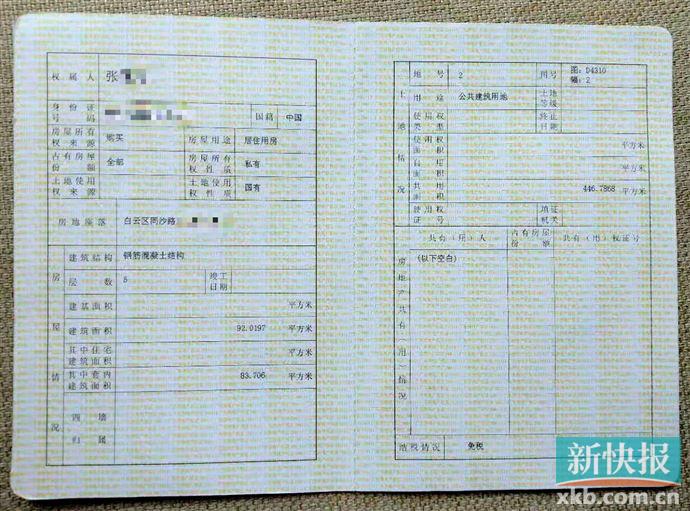 权属人 张
身份证号码 国籍 中国
房屋所有权来源 购买 房屋用途 居住用房
占有房屋份额 全部 房屋所有权性质 私有
土地使用权来源 土地使用权性质 国有
房地座落 白云区同沙路
房屋情况
建筑结构 钢筋混凝土结构
层数 5 竣工日期
建基面积 平方米
建筑面积 92.0197 平方米
其中住宅建筑面积 平方米
其中套内建筑面积 83.706 平方米
四墙归属
土地情况
地号 2 图号 图：D4310
幅：2
用途 公共建筑用地 土地等级
使用权类型 终止日期
使用权面积 平方米
自用面积 平方米
共用面积 446.7868 平方米
使用权证号 填证机关
房地产共有（用）情况
共有（用）人 占有房屋份额 共有（用）权证号
(以下空白)
纳税情况 免税
新快报
xkb.com.cn